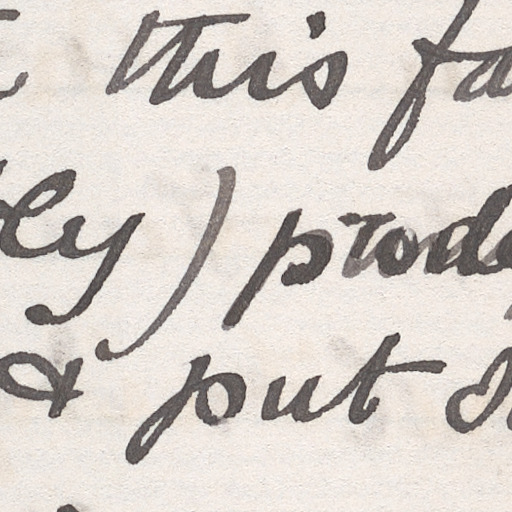 this fa
ly) prod
& put o